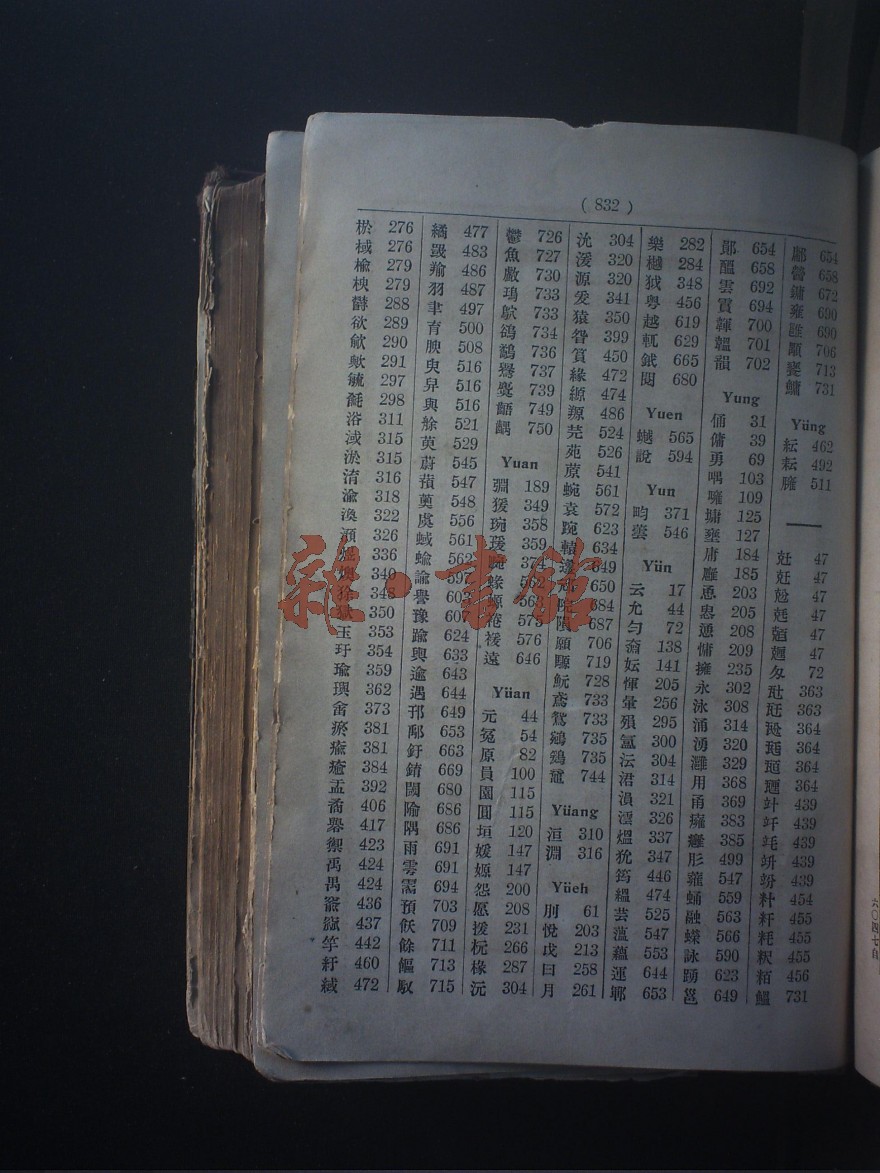 ( 832 )
棜 276
棫 276
楡 279
楰 279
欝 288
欲 289
欨 290
歟 291
毓 297
毹 298
浴 311
淢 315
淤 315
淯 316
渝 318
澳 322
澦 326
336
340
348
獄 350
玉 353
玗 354
瑜 359
璵 362
畬 373
瘀 381
瘐 381
癒 384
盂 392
矞 406
礜 417
禦 423
禹 424
禺 424
窬 436
窳 437
竽 442
紆 460
緎 472
繘 477
罭 483
羭 486
羽 487
聿 497
育 500
腴 508
臾 516
舁 516
與 516
艅 521
萸 529
蔚 545
蕷 547
薁 548
虞 556
蜮 561
蝓 562
諭 597
譽 603
豫 607
踰 624
輿 633
逾 643
遇 644
邘 649
鄅 653
釪 663
錥 669
閾 680
隃 686
隅 686
雨 691
雩 691
霱 694
預 703
飫 709
餘 711
饇 713
馭 715
鬱 726
魚 727
䱷 730
鳿 733
鴥 733
鵒 734
鷸 736
鸒 737
麌 739
齬 749
齵 750
Yuan
弲 189
猨 349
琬 358
瑗 359
畹 374
蝝 562
螈 563
裷 575
褑 576
遠 646
Yüan
元 44
冤 54
原 82
員 100
園 115
圓 115
垣 120
媛 147
嫄 147
怨 200
愿 208
援 231
杬 266
椽 287
沅 304
沇 304
湲 320
源 320
爰 341
猿 350
眢 399
篔 450
緣 472
縓 474
羱 486
芫 524
苑 526
蒝 541
蜿 561
袁 572
踠 623
轅 634
邍 649
邧 650
院 684
隕 687
願 706
騵 719
魭 728
鳶 733
鴛 733
鵷 735
鶢 735
黿 744
Yüang
洹 310
淵 316
Yüeh
刖 61
悅 203
戉 213
曰 258
月 261
樂 282
樾 284
狘 348
粤 456
越 619
軏 629
鉞 665
閱 680
Yuen
蠘 565
說 594
Yun
畇 371
蕓 546
Yün
云 17
允 44
勻 72
奫 138
妘 141
惲 205
暈 256
殞 295
氳 300
沄 304
涒 314
溳 321
澐 326
熅 337
狁 347
筠 446
縕 474
芸 525
薀 547
蘊 553
運 644
鄆 653
鄖 654
醞 658
雲 692
霣 694
韗 700
韞 701
韻 702
Yung
俑 31
傭 39
勇 69
喁 103
噰 109
墉 125
壅 127
庸 184
廱 185
恿 203
愑 205
慂 208
慵 209
擁 235
永 302
泳 308
涌 314
湧 320
灉 329
用 368
甬 369
癕 383
癰 385
肜 499
蕹 547
蛹 559
融 563
蠑 566
詠 590
踴 623
邕 649
鄘 654
醟 658
鏞 672
雍 690
雝 690
顒 706
饔 713
鱅 731
Yüng
紜 462
耘 492
臃 511
兛 47
兝 47
兞 47
兡 47
兣 47
匁 72
瓧 363
瓩 363
瓰 364
瓱 364
瓸 364
甅 364
竍 439
竏 439
竓 439
竕 439
籵 454
粁 455
粍 455
粎 455
粨 456
鰮 731
六〇四七自
雜·書館